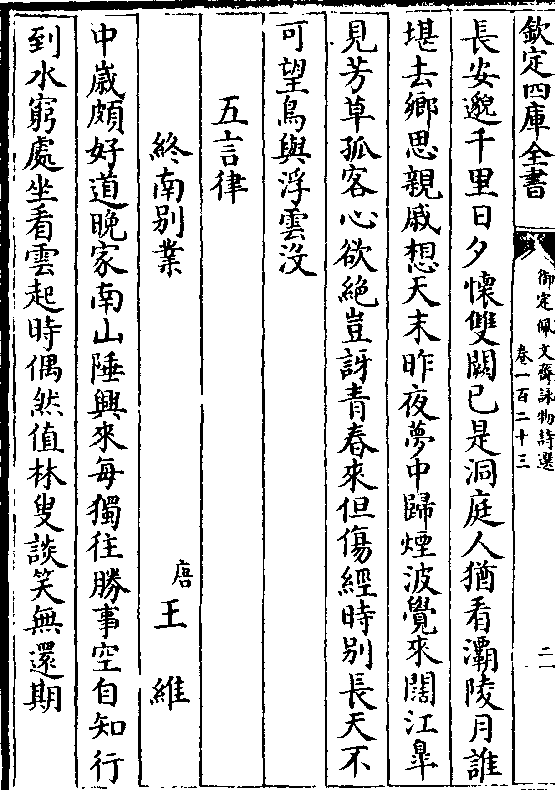 欽定四庫全書
御定佩文齋詠物詩選
卷一百二十三
二
長安邈千里日夕懷雙闕已是洞庭人猶看灞陵月誰
堪去鄉思親戚想天末昨夜夢中歸煙波覺來闊江臯
見芳草孤客心欲絶豈訝青春來但傷經時别長天不
可望鳥與浮雲没
五言律
終南别業
唐王維
中歲頗好道晚家南山陲興來每獨往勝事空自知行
到水窮處坐看雲起時偶然值林叟談笑無還期